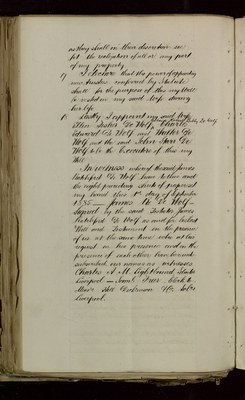 as they shall in their discretion see
fit the realization of all or any part
of my property.
17 I declare that the power of appointing
new trustees conferred by Statute
shall for the purpose of this my Will
be vested in my said wife during
her life
18 Lastly I appoint my said wife
Ellen Sealer De Wolf, Charles
Edward D Wolf and
Wolf and the said John Starr De
Wolf to be the Executors of this my
Will
In witness whereof the said James
Ratchford De Wolf have to this and
the eight preceding sheets of paper set
my hand this 1st day of September
James R De Wolf
Signed by the said Testator James
Ratchford De Wolf as and for his last
Will and Testament in the presence
of us at the same time who at his
request in his presence and in the
presence of each other have hereunto
subscribed our names as witnesses
Charles A. M. Lightbound
Liverpool Clerk to
Liverpool.